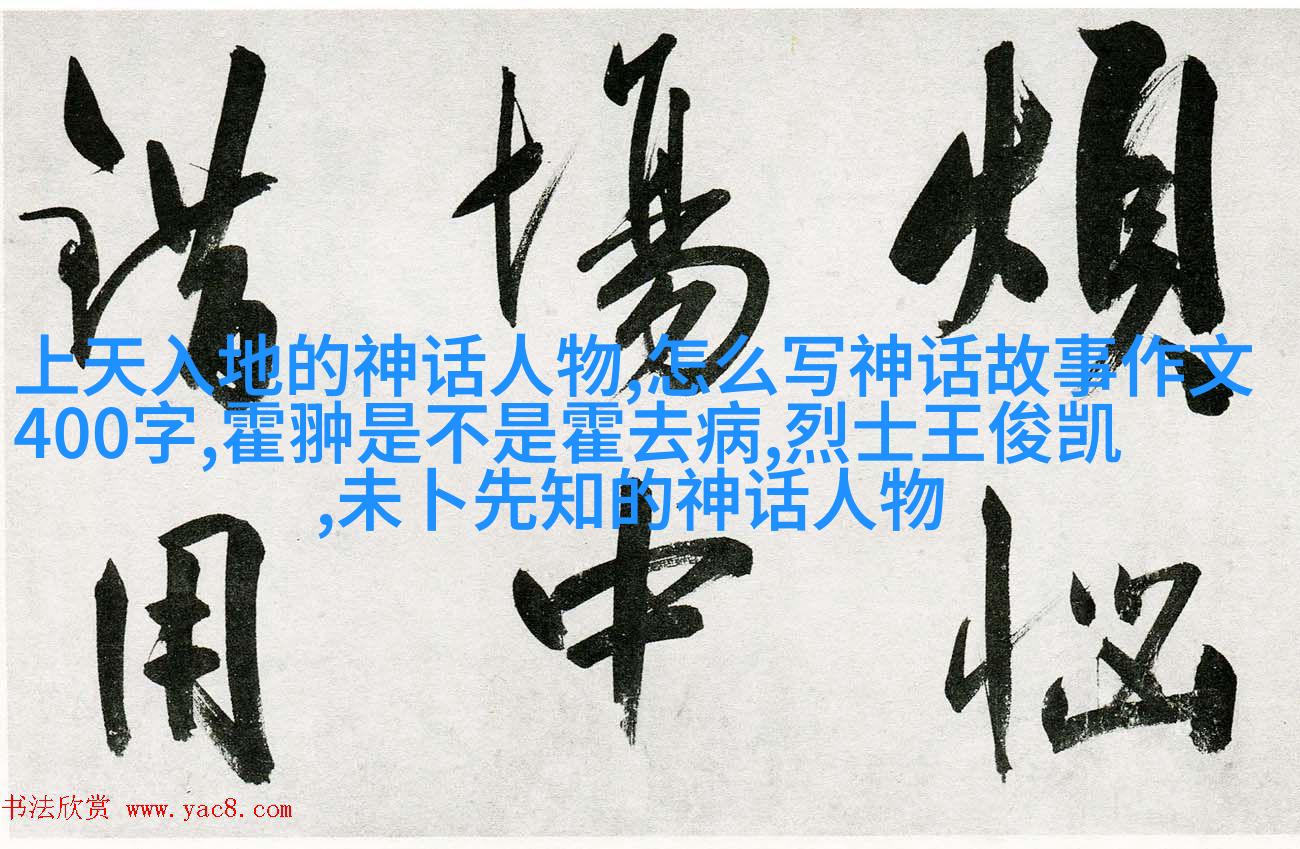 煩惱
場中
錯用
上天入地的神话人物,怎么写神话故事作文
400字,霍翀是不是霍去病,烈士王俊凯
,未卜先知的神话人物
书法欣赏 www.yac8.com